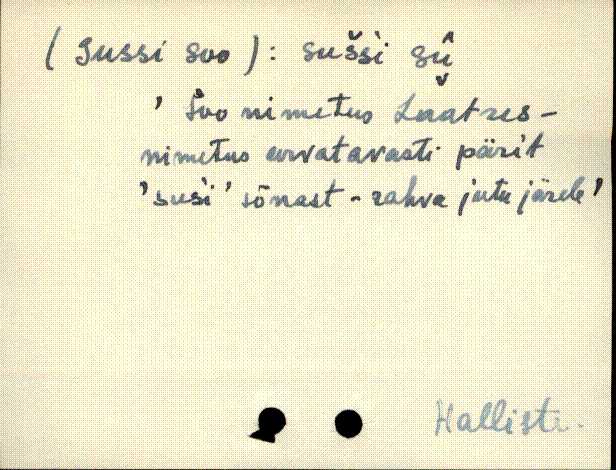 (Sussi soo): sušsi sū̂
' Soo nimetus Laatres -
nimetus arvatavasti pärit
'susi' sõnast - rahva jutu järele'
Halliste.